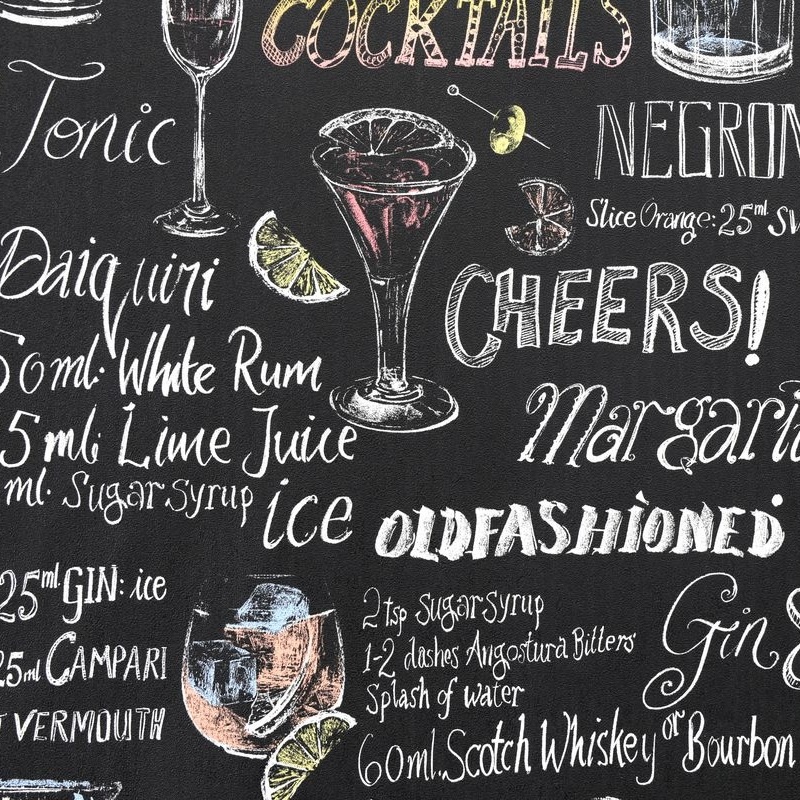 COCKTAILS
Tonic
NEGRON
Slice Orange: 25ml SV
Daiquiri
CHEERS!
50ml: White Rum
5ml: Lime Juice
Margari
ml. Sugar Syrup ice
OLDFASHIONED
25ml GIN: ice
2 tsp Sugar Syrup
Gin &
25ml CAMPARI
1-2 dashes Angostura Bitters
Splash of water
VERMOUTH
60ml. Scotch Whiskey or Bourbon